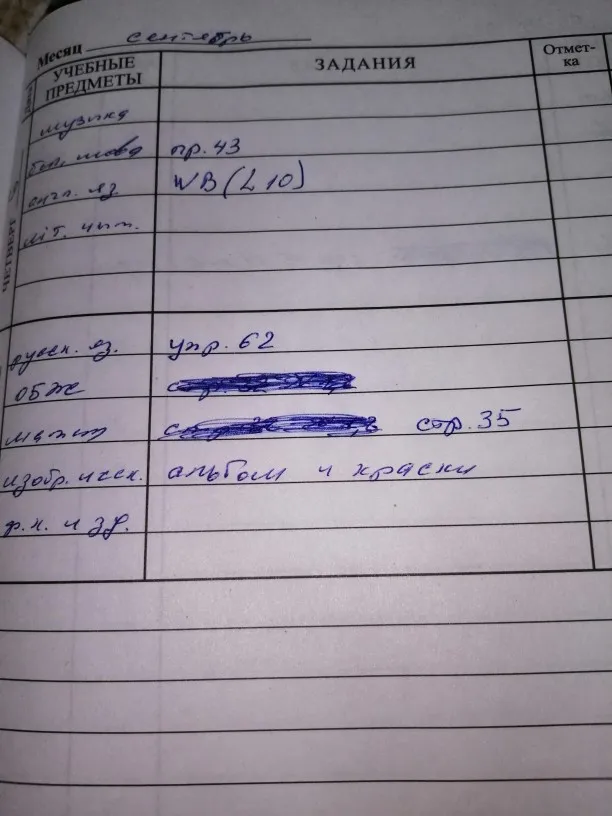 Месяц сентябрь
УЧЕБНЫЕ ПРЕДМЕТЫ ЗАДАНИЯ Отмет-ка
музыка
бел. мова пр. 43
англ. яз WB (L 10)
літ. чыт.
ЧЕТВЕРГ
русск. яз. упр. 62
ОБЖ
матем стр. 35
изобр. иск. альбом и краски
ф.к. и зд.